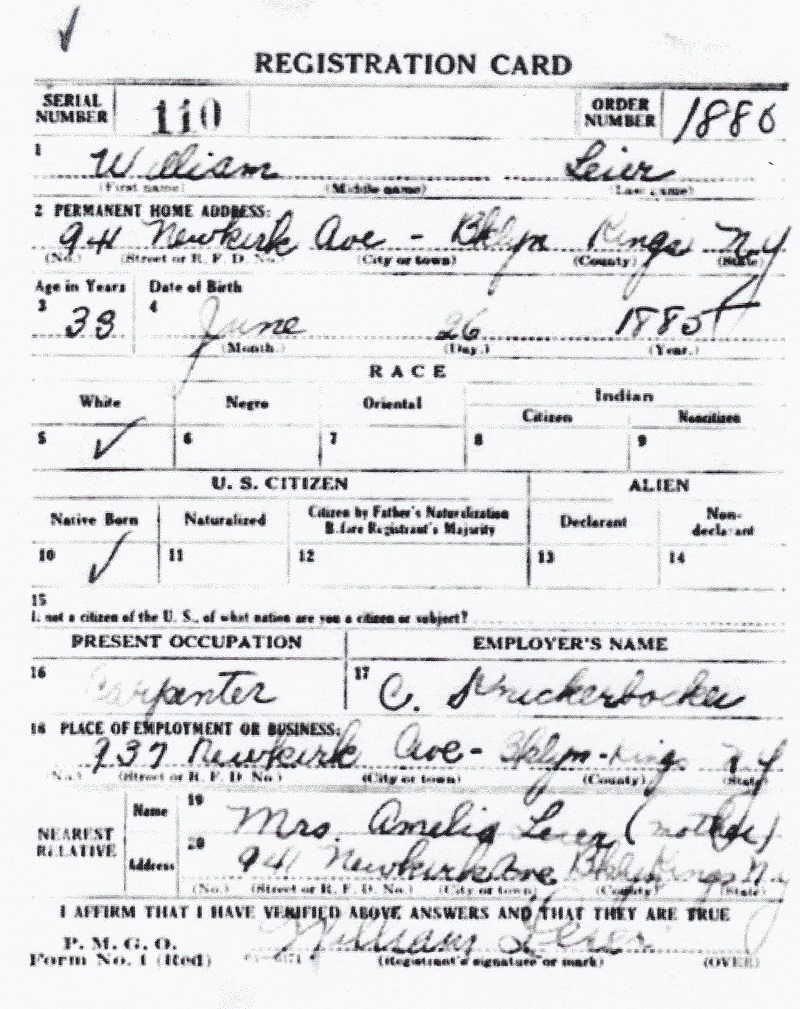 REGISTRATION CARD
SERIAL NUMBER 110 ORDER NUMBER 1880
1 William Leier
(First name) (Middle name) (Last name)
2 PERMANENT HOME ADDRESS:
941 Newkirk Ave - Bklyn Kings N.Y
(No.) (Street or R. F. D. No.) (City or town) (County) (State)
Age in Years Date of Birth
3 33 4 June 26 1885
(Month.) (Day.) (Year.)
RACE
White Negro Oriental Indian
Citizen Noncitizen
5 ✓ 6 7 8 9
U. S. CITIZEN ALIEN
Native Born Naturalized Citizen by Father's Naturalization Before Registrant's Majority Declarant Non-declarant
10 ✓ 11 12 13 14
15
If not a citizen of the U. S., of what nation are you a citizen or subject?
PRESENT OCCUPATION EMPLOYER'S NAME
16 Carpenter 17 C. Knickerbocker
18 PLACE OF EMPLOYMENT OR BUSINESS:
937 Newkirk Ave - Bklyn - Kings N Y
(No.) (Street or R. F. D. No.) (City or town) (County) (State)
NEAREST RELATIVE
Name 19 Mrs. Amelia Leier (mother)
Address 20 941 Newkirk Ave Bklyn Kings N.y
(No.) (Street or R. F. D. No.) (City or town) (County) (State)
I AFFIRM THAT I HAVE VERIFIED ABOVE ANSWERS AND THAT THEY ARE TRUE
William Leier
P. M. G. O.
Form No. 1 (Red) (Registrant's signature or mark) (OVER)